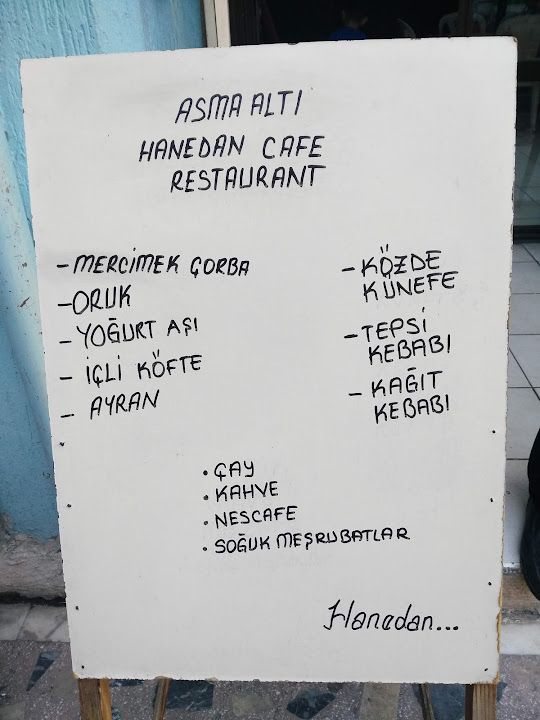 ASMA ALTI
HANEDAN CAFE
RESTAURANT
- MERCİMEK ÇORBA
- ORUK
- YOĞURT AŞI
- İÇLİ KÖFTE
- AYRAN
- KÖZDE
KÜNEFE
- TEPSİ
KEBABI
- KAĞIT
KEBABI
• ÇAY
• KAHVE
• NESCAFE
• SOĞUK MEŞRUBATLAR
Hanedan...